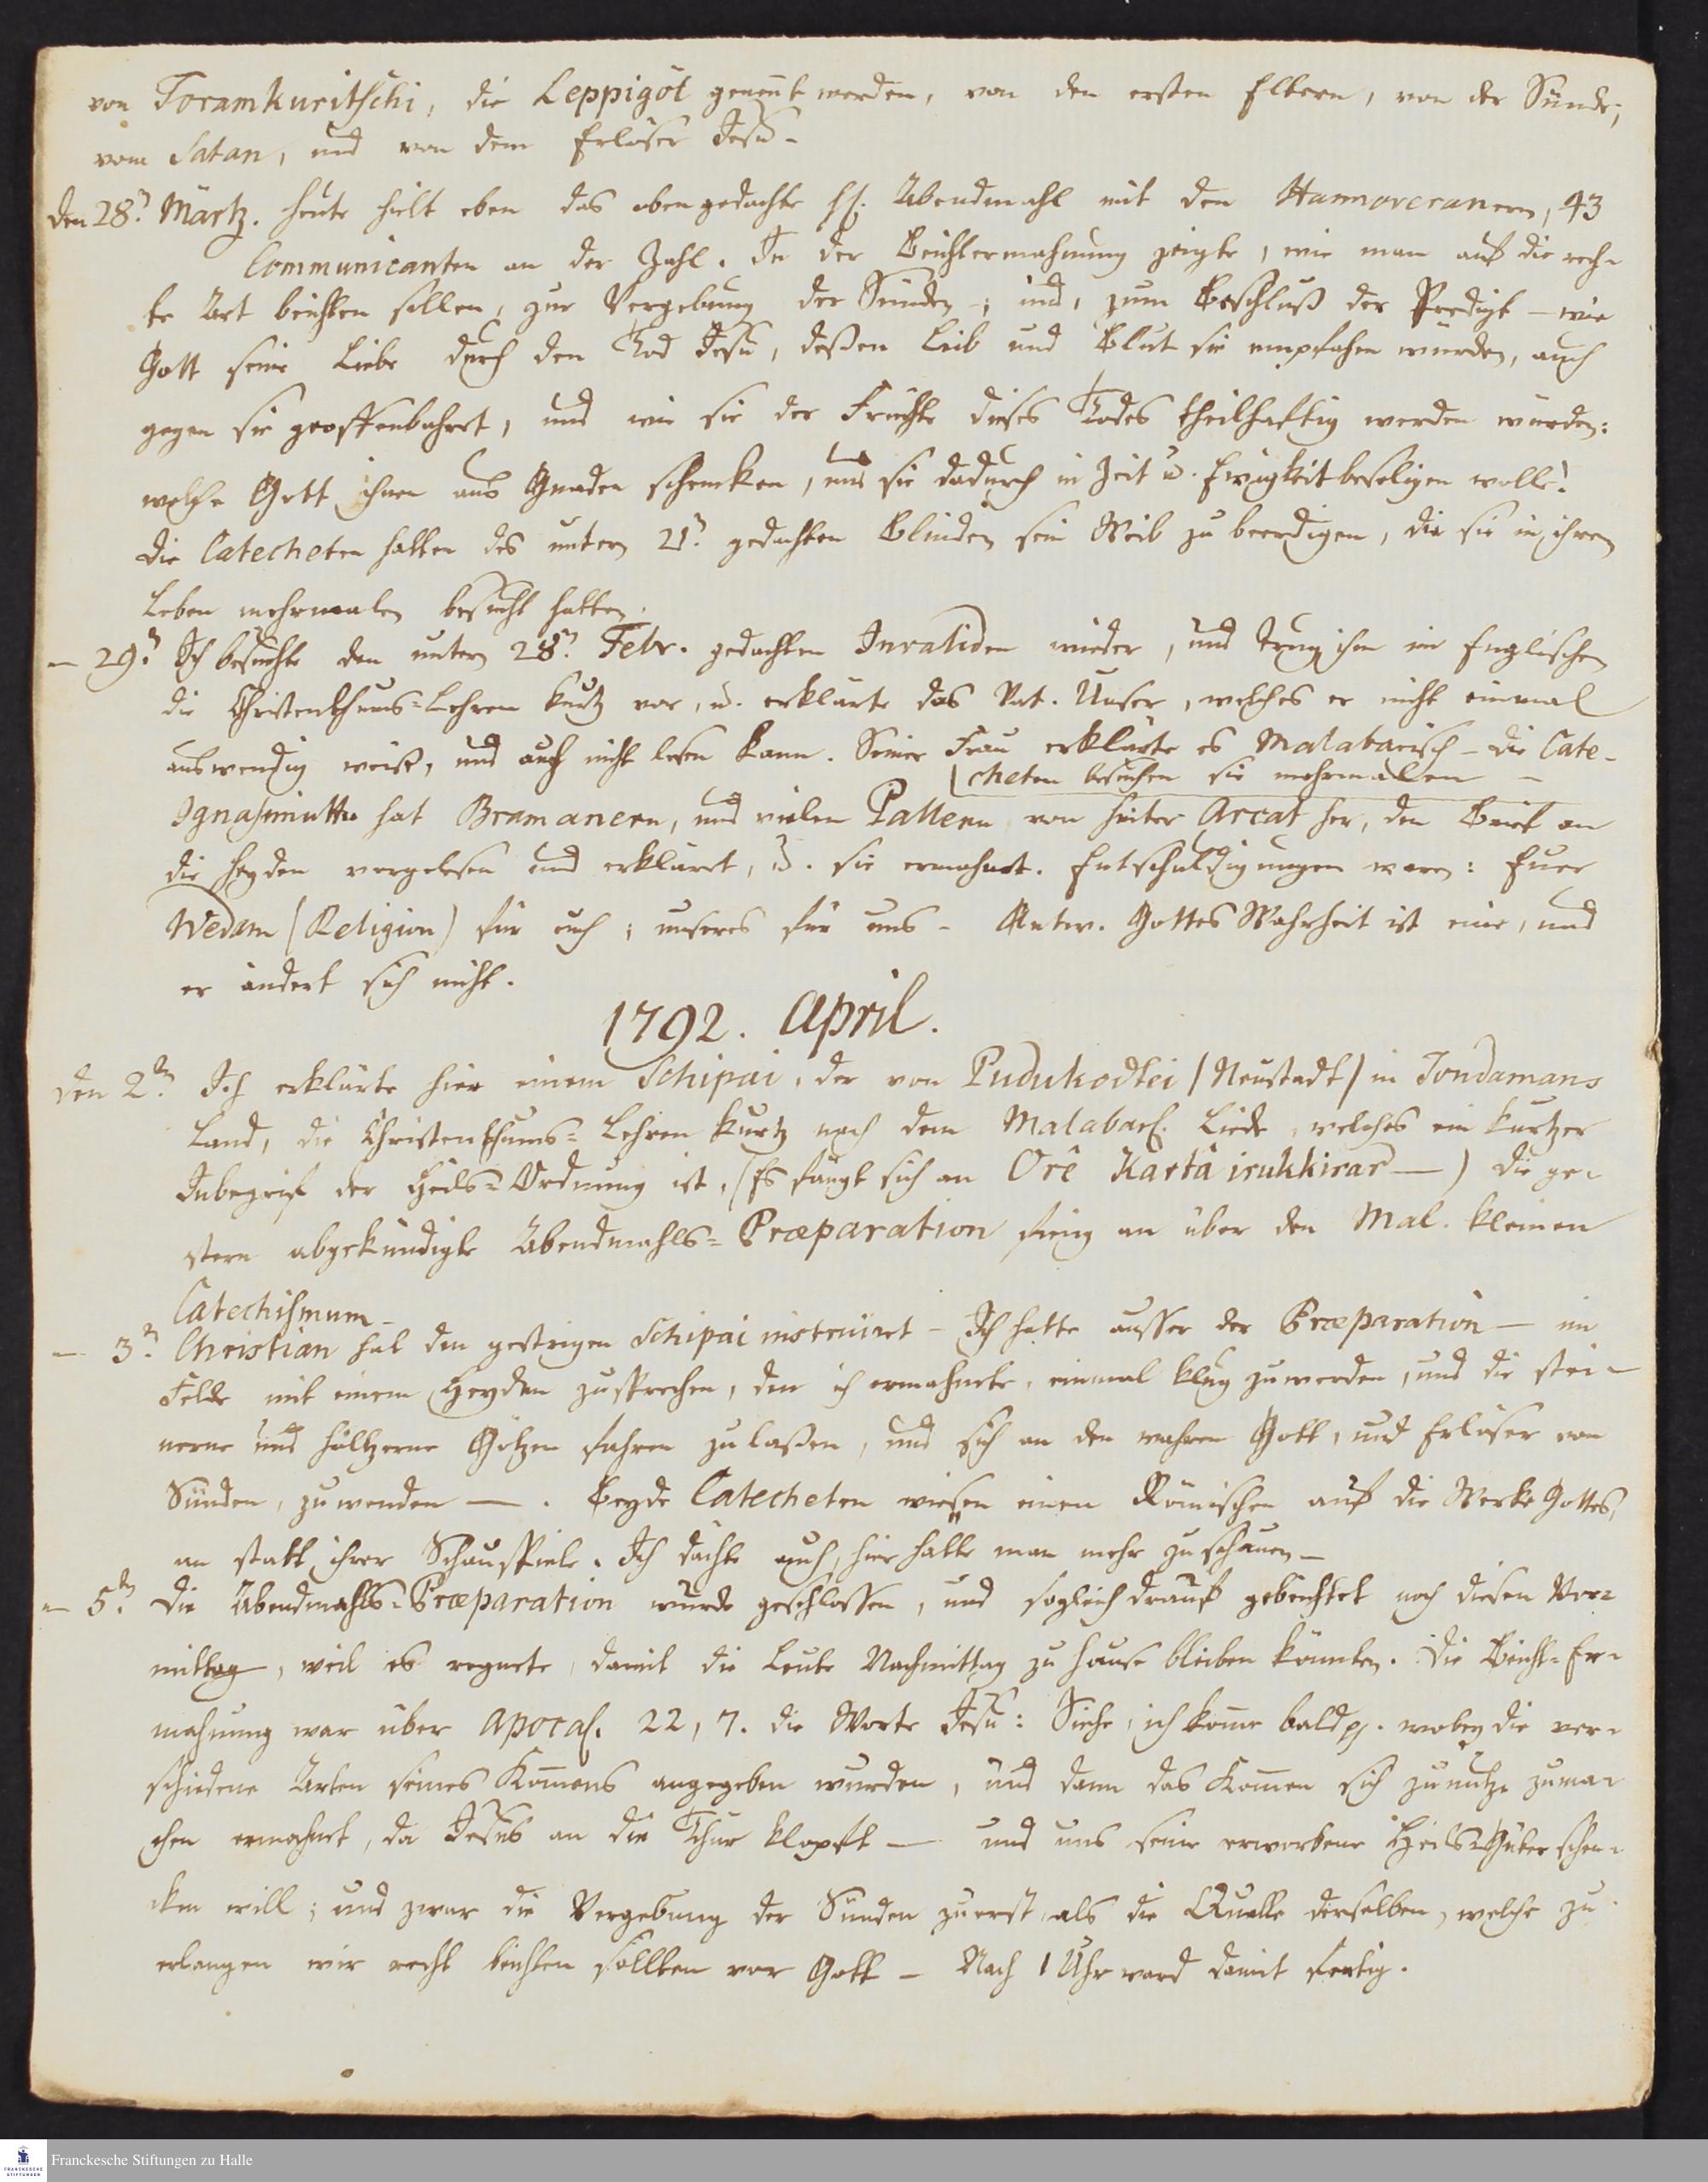 von Toramkuritschi, die Leppigöl genent werden, von den ersten Eltern, von der Sünde,
vom Satan, und von dem Erlöser Jesu -
Den 28.n Märtz. Heute hielt eben das oben gedachte H. Abendmahl mit den Hannoveranern, 43
Communicanten an der Zahl. In der Beichtermahnung zeigte, wie man auf die rech-
te Art beichten sollen, zur Vergebung der Sünden -; und, zum Beschluß der Predigt - wie
Gott seine Liebe durch den Tod Jesu, deßen Leib und Blut sie empfahen würden, auch
gegen sie geoffenbahret, und wie sie der Früchte dieses Todes theilhaftig werden würden:
welche Gott ihnen aus Gnaden schencken, und sie dadurch in Zeit u. Ewigkeit beseligen wolle!
Die Catecheten hatten des untern 21.n gedachten Blinden sein Weib zu beerdigen, die sie in ihrem
Leben mehrmalen besucht hatten.
- 29.n Ich besuchte den untern 28.n Febr. gedachten Invaliden wieder, und trug ihm im Englischen
die Christenthums-Lehren kurtz vor, u. erklärte das Vat. Unser, welches er nicht einmal
auswendig weiß, und auch nicht lesen kann. Seiner Frau erklärte es Malabarisch - die Cate-
cheten besuchen sie mehrmalen -
Ignasimuttu hat Bramanern, und vielen Pallern von hinter Arcat her, den Brief an
die Heyden vorgelesen und erkläret, u. sie ermahnet. Entschuldigungen waren: Euer
Wedam (Religion) für euch; unseres für uns - Antw. Gottes Wahrheit ist eine, und
er ändert sich nicht.
1792. April.
Den 2.tn Ich erklärte hier einem Schipai, der von Pudukodtei (Neustadt) in Tondamans
Land, die Christenthums-Lehren kurtz nach dem Malabars. Liede, welches ein kurtzer
Inbegrif der Heils-Ordnung ist, (Es fängt sich an Orê Kartâ irukkirar -) Die ge-
stern abgekündigte Abendmahls-Præparation fieng an über den Mal. kleinen
Catechismum -
- 3.n Christian hat den gestrigen Schipai instruirt - Ich hatte ausser der Præparation - im
Felde mit einem Heyden zu sprechen, den ich ermahnete, einmal klug zu werden, und die stei-
nerne und höltzerne Götzen fahren zu laßen, und sich an den wahren Gott, und Erlöser von
Sünden, zu wenden -. Beyde Catecheten wiesen einen Römischen auf die Werke Gottes,
an statt ihrer Schauspiele. Ich dächte auch, hier hätte man mehr zu schauen -
- 5.tn Die Abendmahls-Præparation wurde geschlossen, und sogleich drauf gebeichtet noch diesen Vor-
mittag, weil es regnete, damit die Leute Nachmittag zu Hause bleiben könnten. Die Beicht-Er-
mahnung war über Apocal. 22, 7. die Worte Jesu: Siehe, ich kome bald pp. wobey die ver-
schiedene Arten seines Komens angegeben wurden, und dann das Komen sich zu nutze zu ma-
chen ermahnet, da Jesus an die Thür klopft - und uns seine erworbene Heils-Güter schen-
cken will; und zwar die Vergebung der Sünden zuerst, als die Quelle derselben, welche zu
erlangen wir recht beichten sollten vor Gott - Nach 1 Uhr ward damit fertig.
Franckesche Stiftungen zu Halle